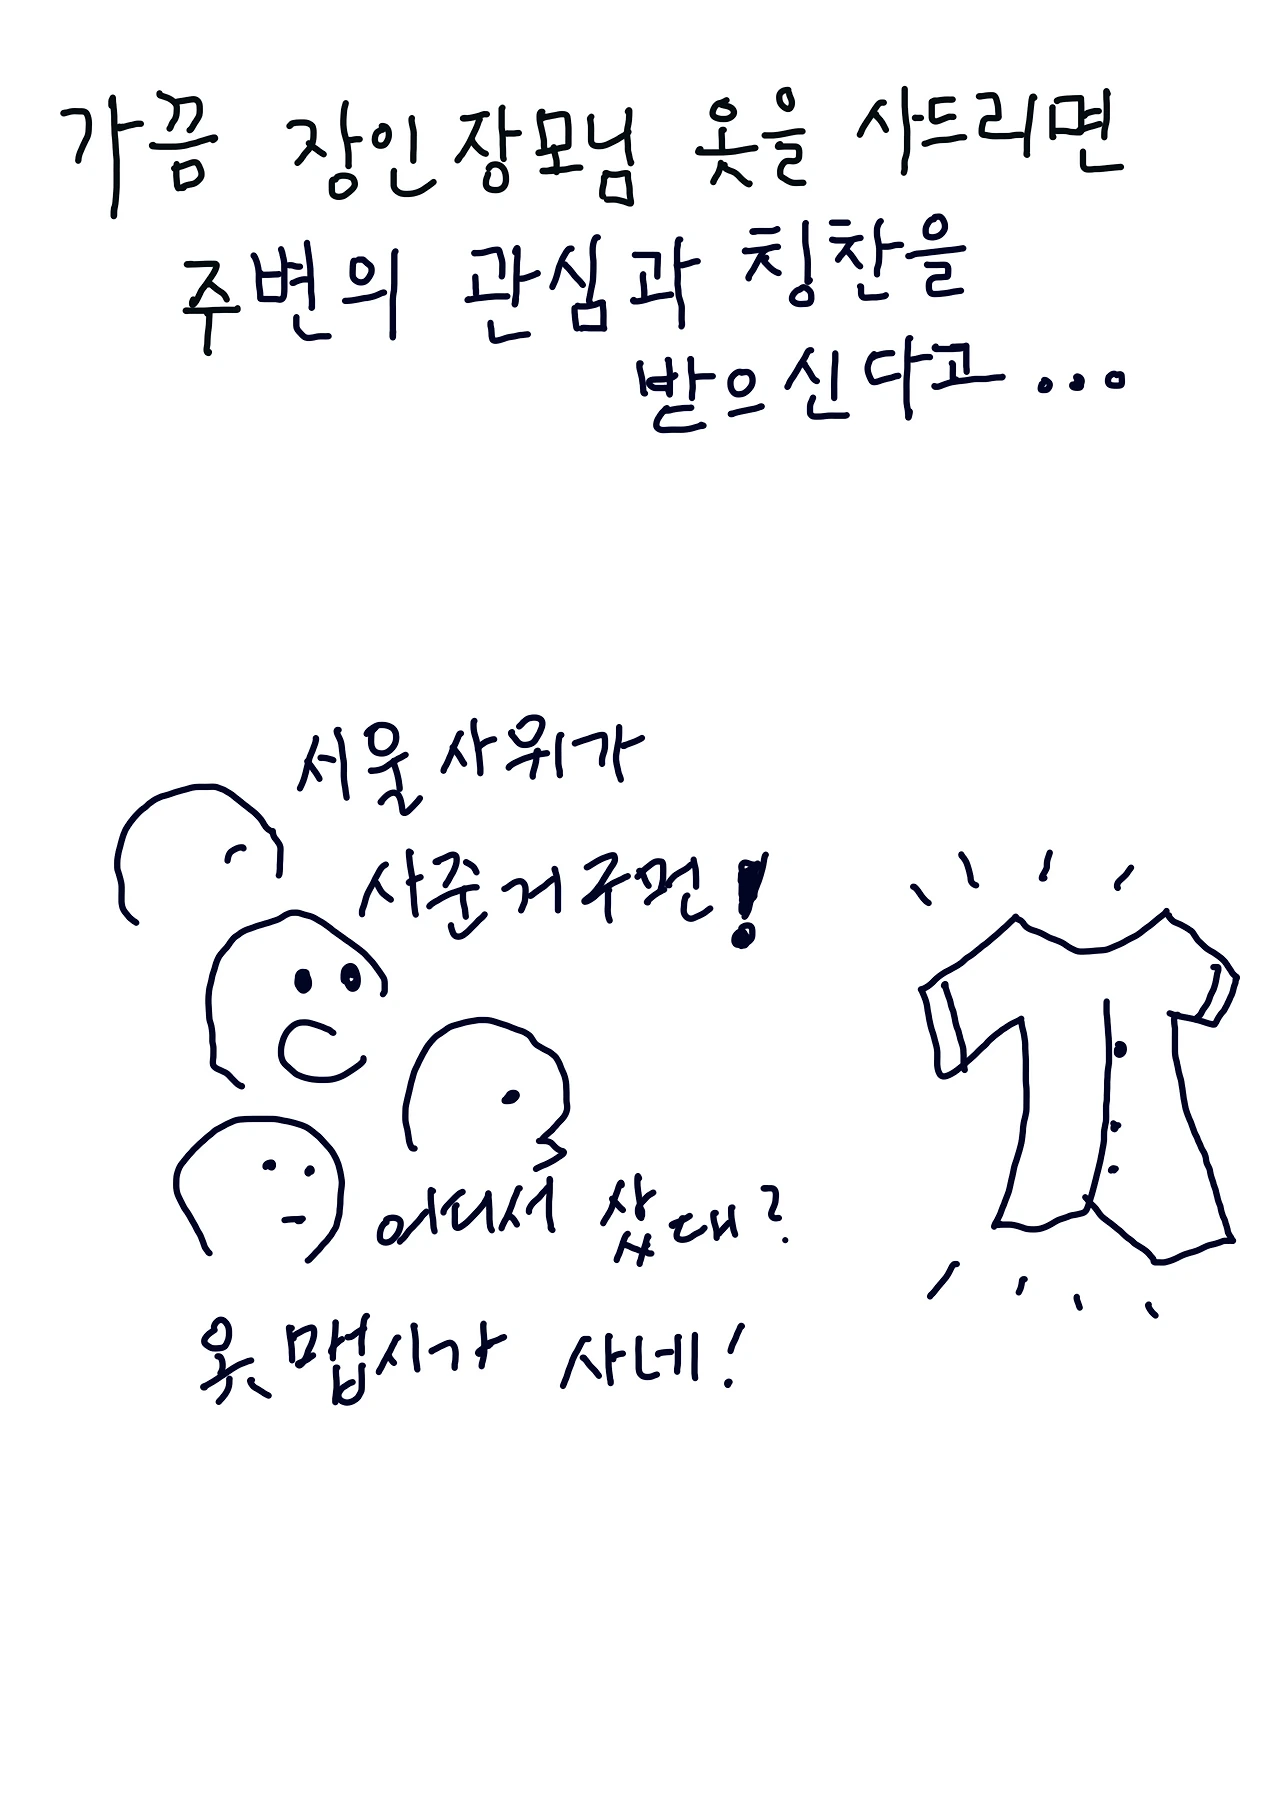 가끔 장인장모님 옷을 사드리면
주변의 관심과 칭찬을
받으신다고...
서울 사위가
사준거주먼!
어디서 샀대?
옷 맵시가 사네!